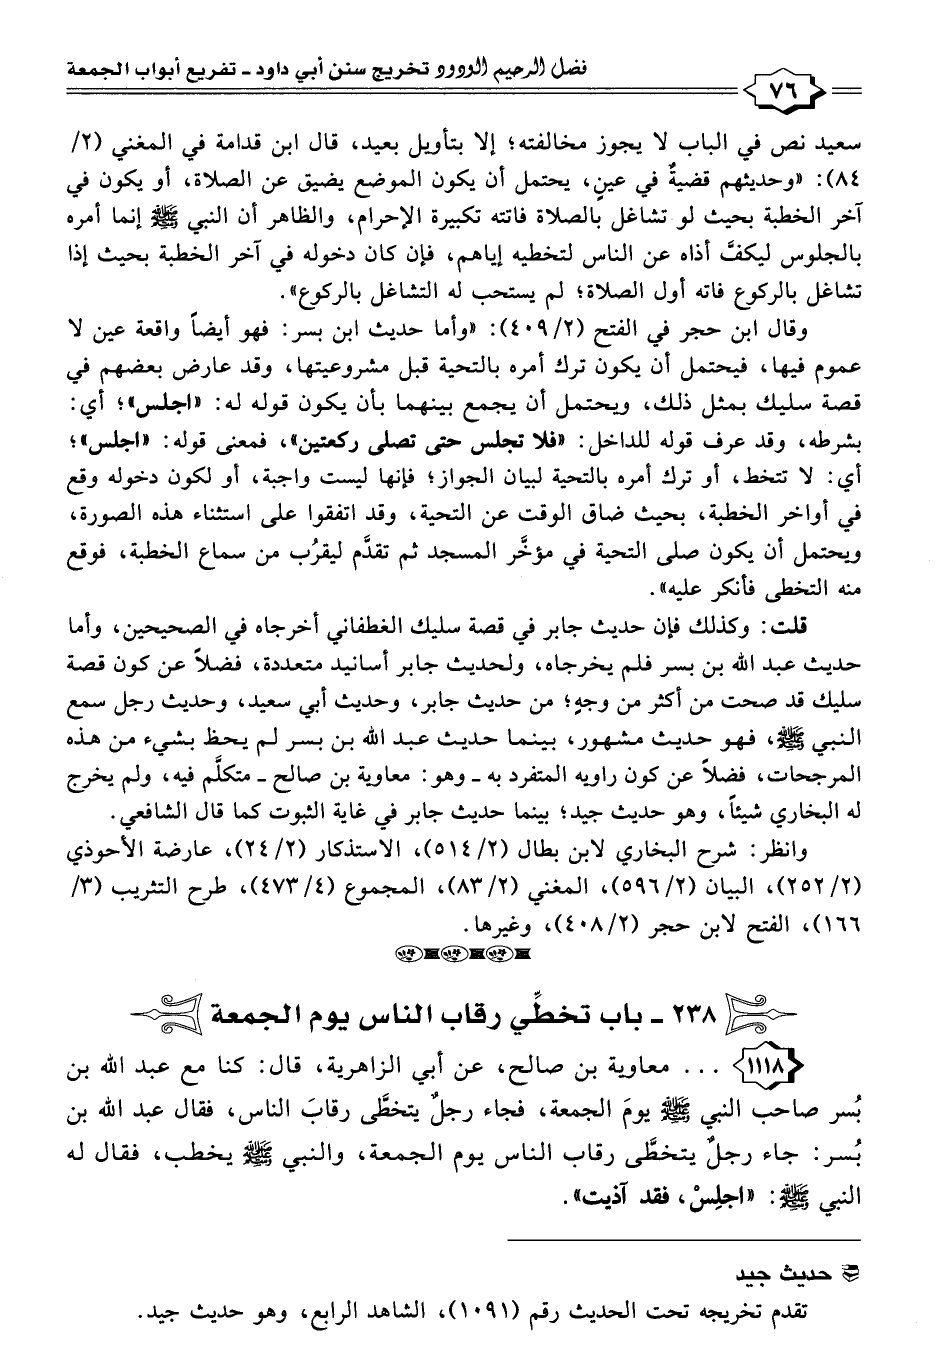 ٧٦
فضل الرحيم الودود تخريج سنن أبي داود ـ تفريع أبواب الجمعة
سعيد نص في الباب لا يجوز مخالفته؛ إلا بتأويل بعيد، قال ابن قدامة في المغني (٢/
٨٤): «وحديثهم قضيةٌ في عينٍ، يحتمل أن يكون الموضع يضيق عن الصلاة، أو يكون في
آخر الخطبة بحيث لو تشاغل بالصلاة فاتته تكبيرة الإحرام، والظاهر أن النبي ﷺ إنما أمره
بالجلوس ليكفَّ أذاه عن الناس لتخطيه إياهم، فإن كان دخوله في آخر الخطبة بحيث إذا
تشاغل بالركوع فاته أول الصلاة؛ لم يستحب له التشاغل بالركوع».
وقال ابن حجر في الفتح (٤٠٩/٢): «وأما حديث ابن بسر: فهو أيضاً واقعة عين لا
عموم فيها، فيحتمل أن يكون ترك أمره بالتحية قبل مشروعيتها، وقد عارض بعضهم في
قصة سليك بمثل ذلك، ويحتمل أن يجمع بينهما بأن يكون قوله له: «اجلس»؛ أي:
بشرطه، وقد عرف قوله للداخل: «فلا تجلس حتى تصلى ركعتين»، فمعنى قوله: «اجلس»؛
أي: لا تتخط، أو ترك أمره بالتحية لبيان الجواز؛ فإنها ليست واجبة، أو لكون دخوله وقع
في أواخر الخطبة، بحيث ضاق الوقت عن التحية، وقد اتفقوا على استثناء هذه الصورة،
ويحتمل أن يكون صلى التحية في مؤخَّر المسجد ثم تقدَّم ليقرُب من سماع الخطبة، فوقع
منه التخطى فأنكر عليه».
قلت: وكذلك فإن حديث جابر في قصة سليك الغطفاني أخرجاه في الصحيحين، وأما
حديث عبد الله بن بسر فلم يخرجاه، ولحديث جابر أسانيد متعددة، فضلاً عن كون قصة
سليك قد صحت من أكثر من وجهٍ؛ من حديث جابر، وحديث أبي سعيد، وحديث رجل سمع
النبي ﷺ، فهو حديث مشهور، بينما حديث عبد الله بن بسر لم يحظ بشيء من هذه
المرجحات، فضلاً عن كون راويه المتفرد به ـ وهو: معاوية بن صالح ـ متكلَّم فيه، ولم يخرج
له البخاري شيئاً، وهو حديث جيد؛ بينما حديث جابر في غاية الثبوت كما قال الشافعي.
وانظر: شرح البخاري لابن بطال (٥١٤/٢)، الاستذكار (٢٤/٢)، عارضة الأحوذي
(٢٥٢/٢)، البيان (٥٩٦/٢)، المغني (٨٣/٢)، المجموع (٤٧٣/٤)، طرح التثريب (٣/
١٦٦)، الفتح لابن حجر (٤٠٨/٢)، وغيرها.
٢٣٨ ـ باب تخطِّي رقاب الناس يوم الجمعة
١١١٨ ... معاوية بن صالح، عن أبي الزاهرية، قال: كنا مع عبد الله بن
بُسر صاحب النبي ﷺ يومَ الجمعة، فجاء رجلٌ يتخطَّى رقابَ الناس، فقال عبد الله بن
بُسر: جاء رجلٌ يتخطَّى رقاب الناس يوم الجمعة، والنبي ﷺ يخطب، فقال له
النبي ﷺ: «اجلِسْ، فقد آذيت».
حديث جيد
تقدم تخريجه تحت الحديث رقم (١٠٩١)، الشاهد الرابع، وهو حديث جيد.